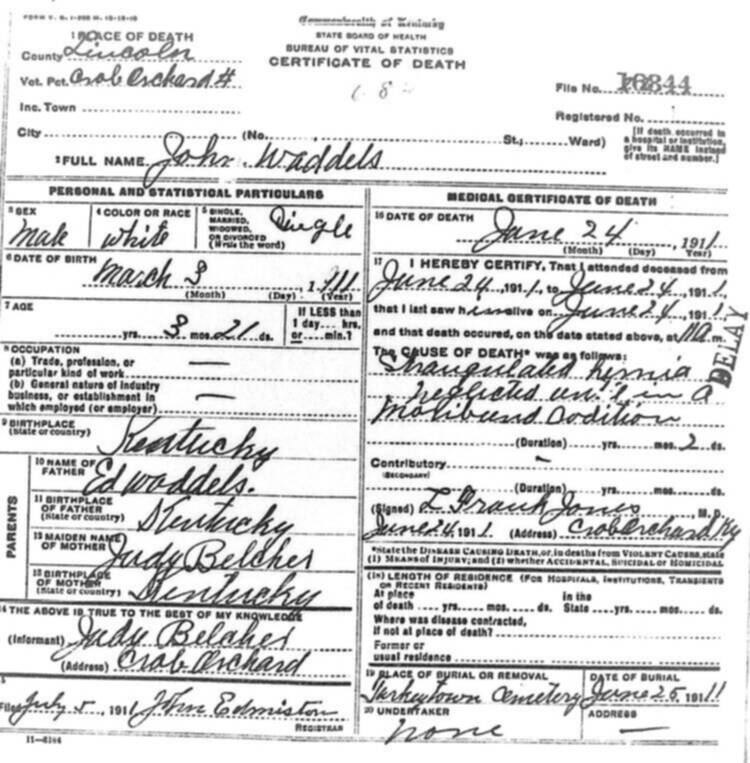 FORM V. S. 1-
Commonwealth of Kentucky
STATE BOARD OF HEALTH
BUREAU OF VITAL STATISTICS
CERTIFICATE OF DEATH
1 PLACE OF DEATH
County Lincoln
Vot. Pct. Crab Orchard #
Inc. Town
City (No. St.; Ward)
File No. 16844
Registered No.
[If death occurred in
a hospital or institution,
give its NAME instead
of street and number.]
2 FULL NAME John Waddels
PERSONAL AND STATISTICAL PARTICULARS
3 SEX
Male
4 COLOR OR RACE
white
5 SINGLE,
MARRIED,
WIDOWED,
OR DIVORCED
(Write the word)
Single
6 DATE OF BIRTH
March 3, 1911
(Month) (Day) (Year)
7 AGE
yrs. 3 mos. 21 ds.
If LESS than
1 day.... hrs.
or .... min.?
8 OCCUPATION
(a) Trade, profession, or
particular kind of work —
(b) General nature of industry
business, or establishment in
which employed (or employer) —
9 BIRTHPLACE
(State or country) Kentucky
PARENTS
10 NAME OF
FATHER Ed waddels.
11 BIRTHPLACE
OF FATHER
(State or country) Kentucky
12 MAIDEN NAME
OF MOTHER Judy Belcher
13 BIRTHPLACE
OF MOTHER
(State or country) Kentucky
14 THE ABOVE IS TRUE TO THE BEST OF MY KNOWLEDGE
(Informant) Judy Belcher
(Address) Crab Orchard
Filed July 5, 1911 John Edmiston
REGISTRAR
11—5184
MEDICAL CERTIFICATE OF DEATH
16 DATE OF DEATH
June 24, 1911
(Month) (Day) Year
17 I HEREBY CERTIFY, That I attended deceased from
June 24, 1911, to June 24, 1911,
that I last saw him alive on June 24, 1911,
and that death occured, on the date stated above, at 11 a m.
The CAUSE OF DEATH* was as follows:
Straugulated hernia
neglected in a
Moribund codition
(Duration) yrs. mos. 2 ds.
Contributory —
(SECONDARY)
(Duration) yrs. mos. ds.
(Signed) L. Frank Jones M. D.
June 24, 1911 (Address) Crab Orchard Ky
*State the DISEASE CAUSING DEATH, or, in deaths from VIOLENT CAUSES, state
(1) MEANS OF INJURY; and (2) whether ACCIDENTAL, SUICIDAL or HOMICIDAL
(18) LENGTH OF RESIDENCE (FOR HOSPITALS, INSTITUTIONS, TRANSIENTS
OR RECENT RESIDENTS)
At place In the
of death yrs. mos. ds. State yrs. mos. ds.
Where was disease contracted,
if not at place of death?
Former or
usual residence
19 PLACE OF BURIAL OR REMOVAL
Turkeytown Cemetery
DATE OF BURIAL
June 25, 1911
20 UNDERTAKER
none
ADDRESS
—
DELAY